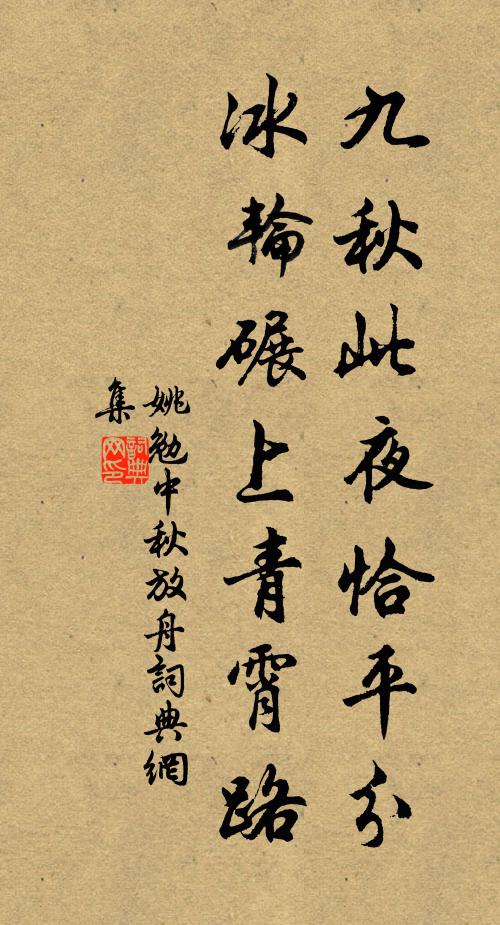 九秋此夜恰平分
冰輪碾上青霄路
姚勉中秋放舟詞典網
集
詞典網印